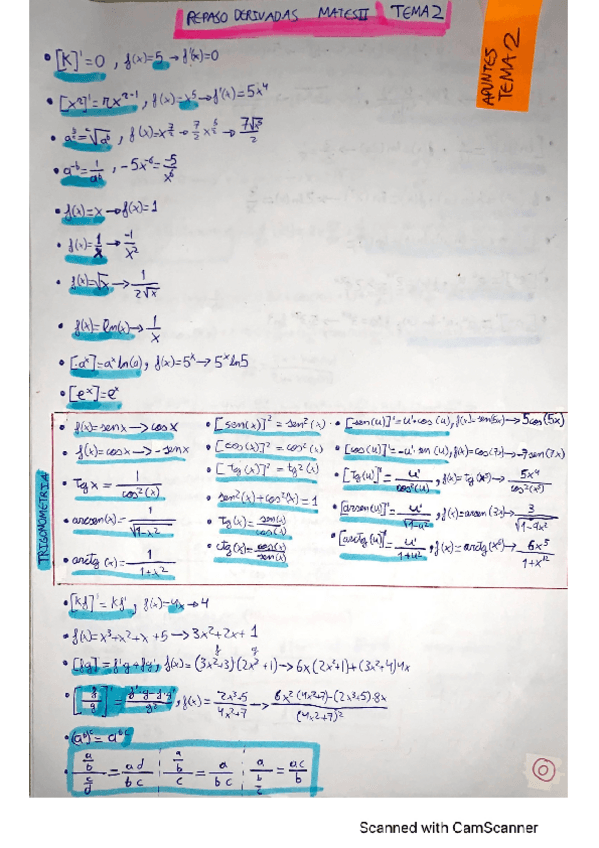 REPASO DERIVADAS MATES II TEMA 2
APUNTES TEMA 2
• [K]'=0 , f(x)=5 → f'(x)=0
• [x^n]'=nx^(n-1) , f(x)=x^5 → f'(x)=5x^4
f(x)=x^(7/2) → 7/2 x^(5/2) → 7√x^5/2
• a^(-b)=1/a^b , -5x^(-6)=-5/x^6
• f(x)=x → f(x)=1
• f(x)=1/x → -1/x^2
• f(x)=√x → 1/(2√x)
• f(x)=ln(x) → 1/x
• [a^x]=a^x ln(a), f(x)=5^x → 5^x ln5
• [e^x]=e^x
TRIGONOMETRIA
• f(x)=senx → cosx
• f(x)=cosx → -senx
• Tgx = 1/cos^2(x)
• arcsen(x)= 1/√1-x^2
• arctg(x)= 1/1+x^2
• [sen(x)]^2 = sen^2(x)
• [cos(x)]^2 = cos^2(x)
• [Tg(x)]^2 = tg^2(x)
• sen^2(x)+cos^2(x)=1
• Tg(x)= sen(x)/cos(x)
• ctg(x)= cos(x)/sen(x)
• [sen(u)]'=u'·cos(u), f(x)=sen(5x) → 5cos(5x)
• [cos(u)]'=-u'·sen(u), f(x)=cos(7x) → -7sen(7x)
• [Tg(u)]'= u'/cos^2(u), f(x)=Tg(x^5) → 5x^4/cos^2(x^5)
• [arcsen(u)]'= u'/√1-u^2, f(x)=arcsen(3x) → 3/√1-9x^2
• [arctg(u)]'= u'/1+u^2, f(x)=arctg(x^6) → 6x^5/1+x^12
• [Kf]'=Kf', f(x)=4x → 4
• f(x)=x^3+x^2+x+5 → 3x^2+2x+1
f g
• [fg]'=f'g+fg', f(x)=(3x^2+3)(2x^2+1) → 6x(2x^2+1)+(3x^2+4)4x
• [f/g]'= f'g-f·g'/g^2, f(x)= 2x^3+5/4x^2+7 → 6x^2(4x^2+7)-(2x^3+5)·8x/(4x^2+7)^2
• (a^b)^c = a^(bc)
• (a/b)/(c/d) = ad/bc (a/b)/c = a/bc a/(b/c) = ac/b
Scanned with CamScanner